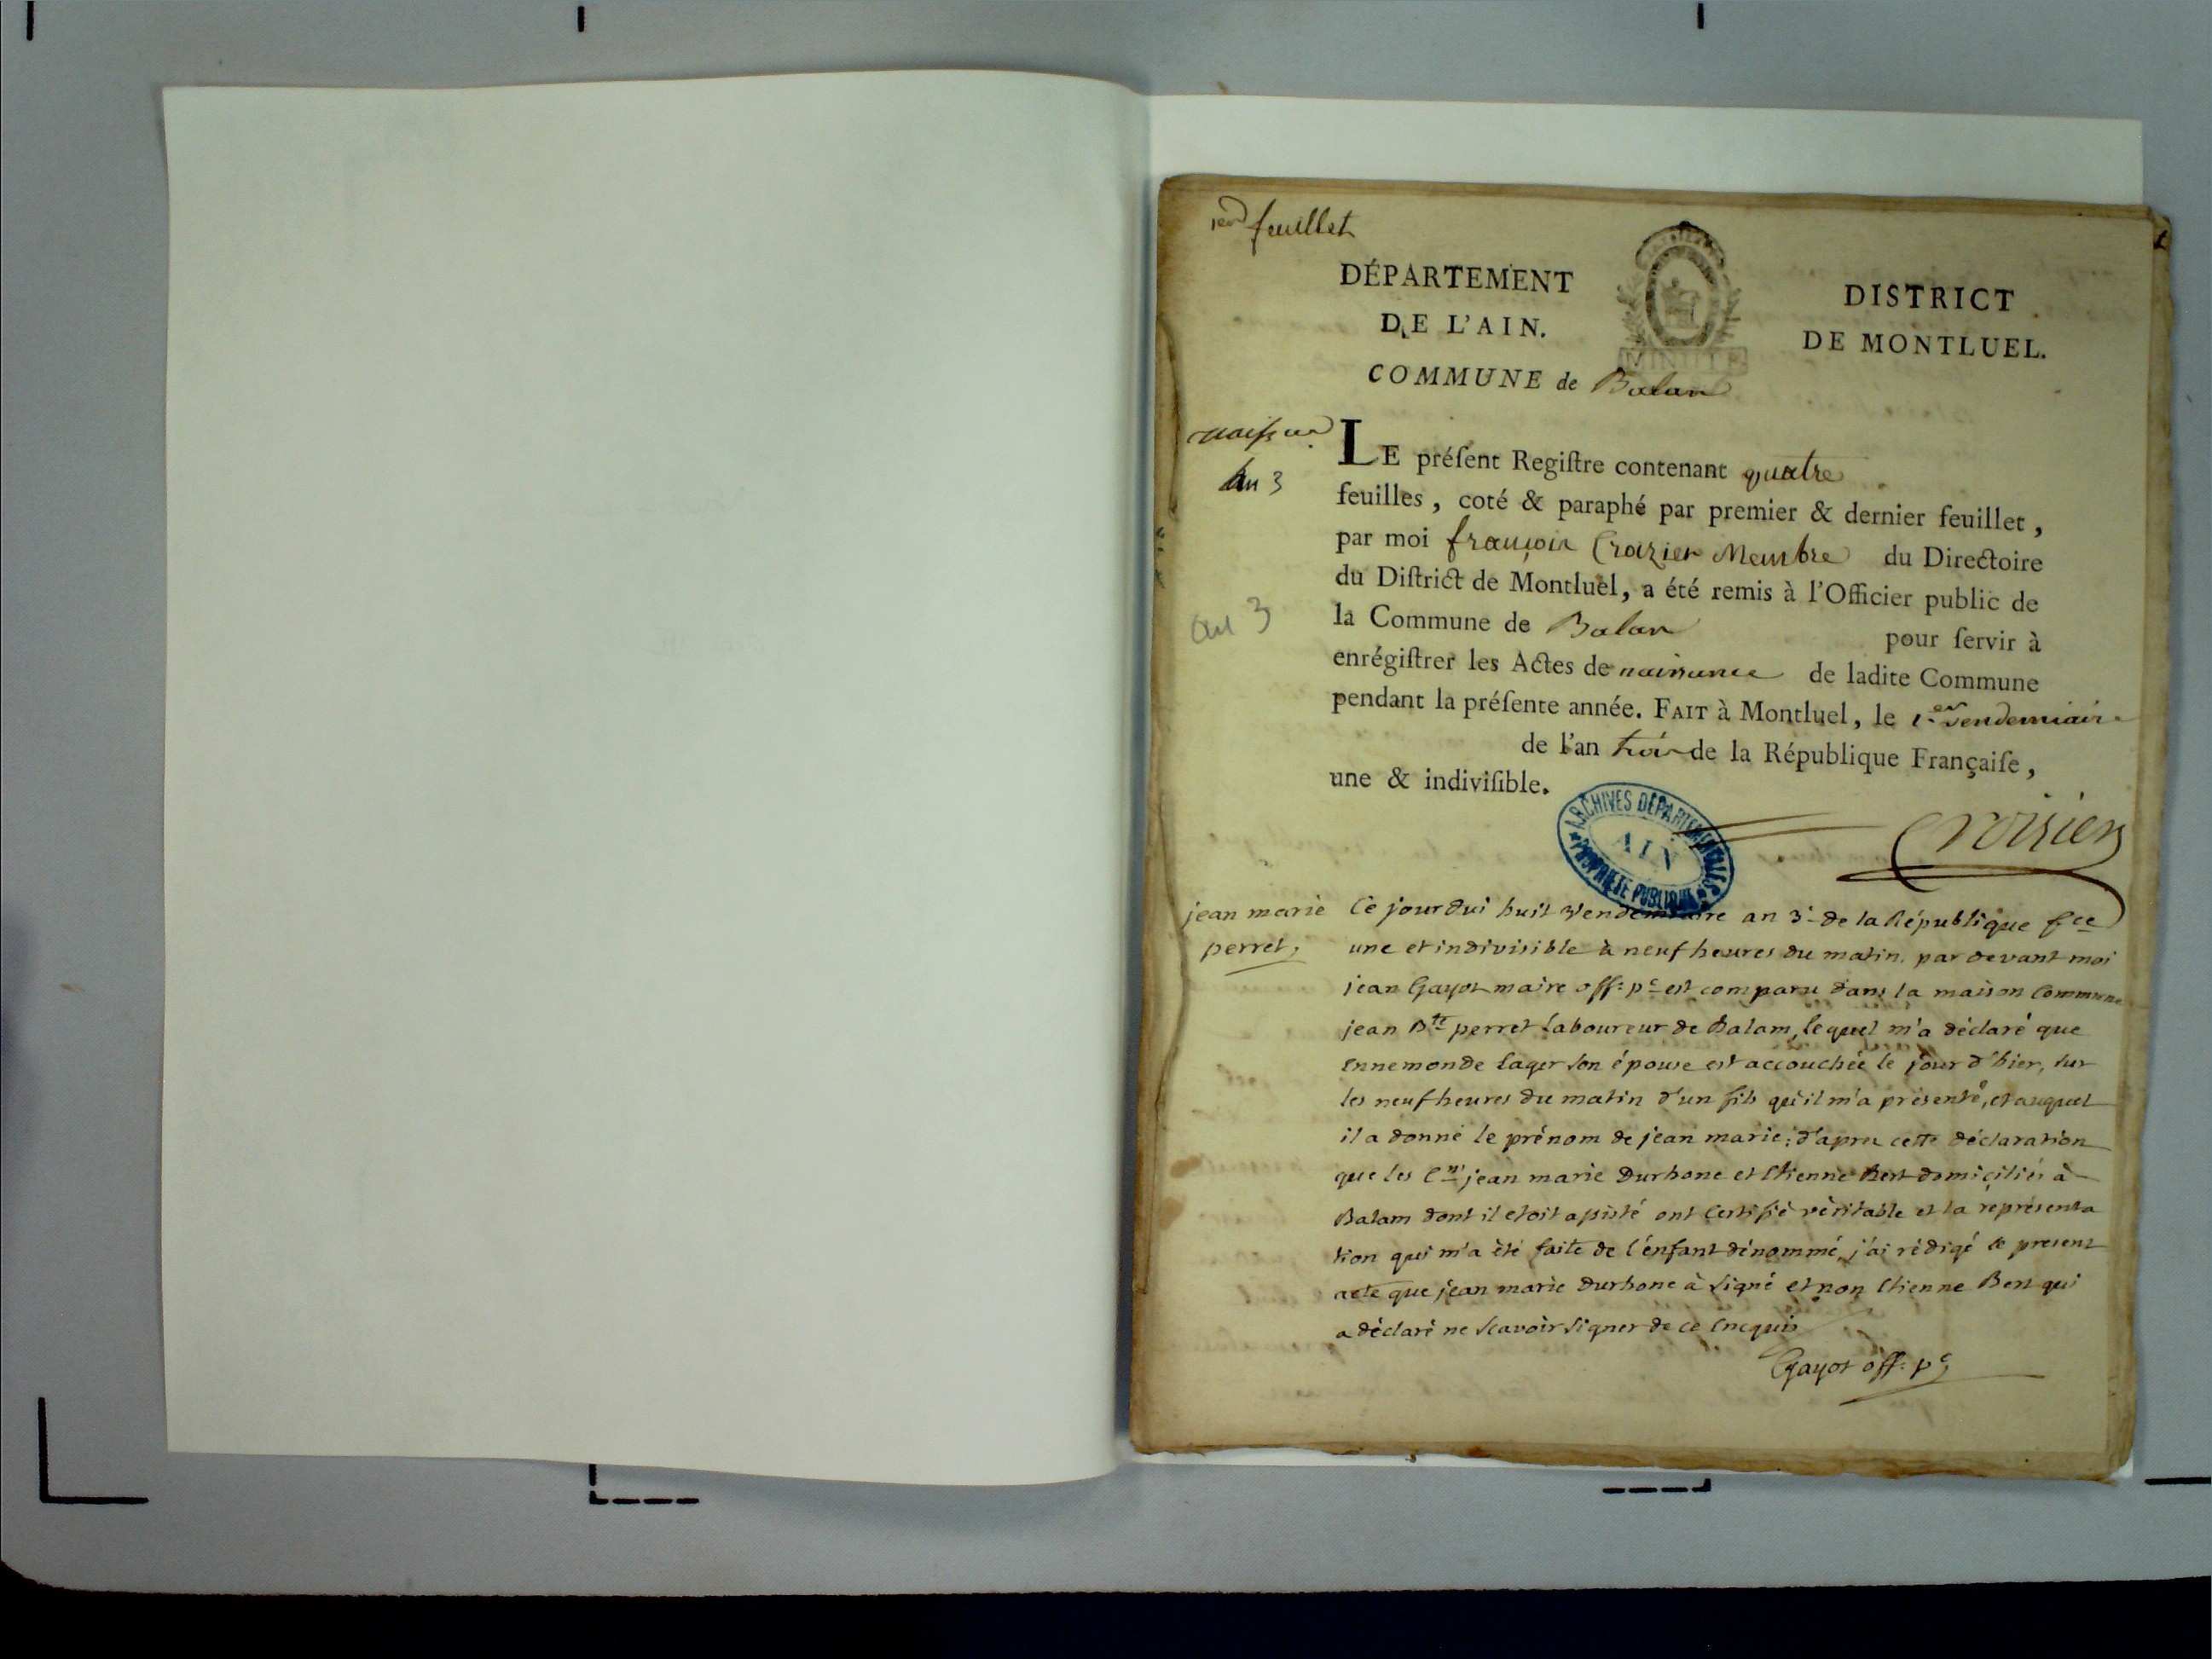 1er feuillet
DÉPARTEMENT
DE L'AIN.
DISTRICT
DE MONTLUEL.
COMMUNE de Balan
naissces
An 3
LE préſent Regiſtre contenant quatre
feuilles, coté & paraphé par premier & dernier feuillet,
par moi françois Crozier Membre du Directoire
du Diſtrict de Montluel, a été remis à l'Officier public de
an 3
la Commune de Balan pour ſervir à
enrégiſtrer les Actes de naissance de ladite Commune
pendant la préſente année. FAIT à Montluel, le 1er vendemiaire
de l'an trois de la République Françaiſe,
une & indiviſible.
ARCHIVES DÉPARTEMENTALES
AIN
PROPRIÉTÉ PUBLIQUE
Croisier
jean marie
perret,
Ce jourdui huit vendemiaire an 3e de la République fce
une et indivisible à neuf heures du matin, par devant moi
jean Gayot maire off: pc est comparu dans la maison Commune
jean Bte perret Laboureur de Balam, lequel m'a déclaré que
Ennemonde Lager son épouse est accouchée le jour d'hier, sur
les neuf heures du matin d'un fils qu'il m'a présenté, et auquel
il a donné le prénom de jean marie; d'apres cette déclaration
que les Cns jean marie Durhone et Etienne Bert domiciliés à
Balam dont il etoit assisté ont certifié véritable et la représenta
tion qui m'a été faite de l'énfant dénommé, j'ai rédigé le present
acte que jean marie Durhone à signé et non Etienne Bert qui
a déclaré ne scavoir signer de ce Enequis
Gayot off: pc